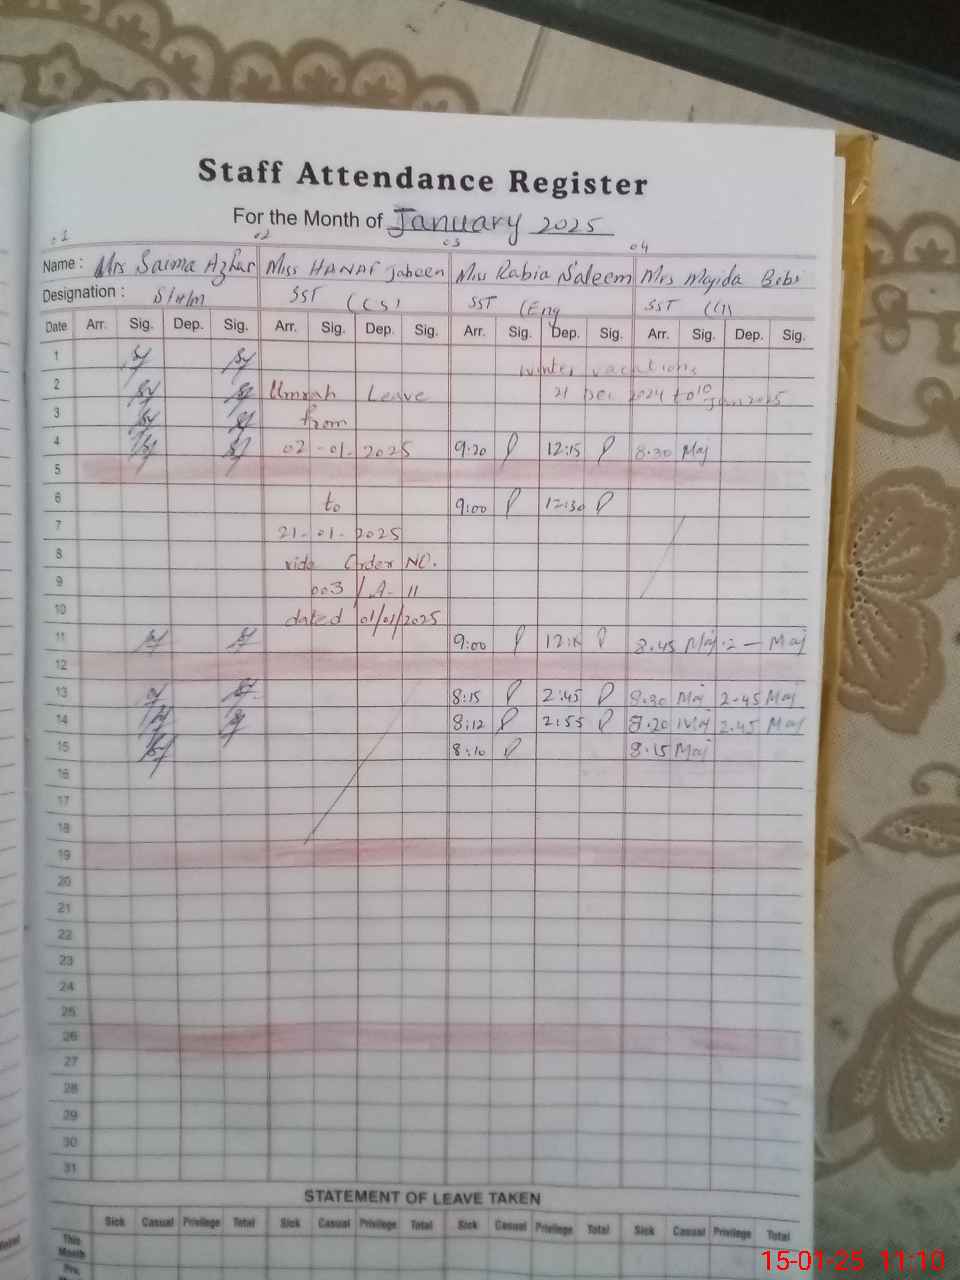 Staff Attendance Register
For the Month of January 2025
01 02 03 04
Name : Mrs Saima Azhar Miss HANAF Jabeen Miss Rabia Saleem Mrs Majida Bibi
Designation : S/H/M SST (CS) SST (Eng
Date Arr. Sig. Dep. Sig. Arr. Sig. Dep. Sig. Arr. Sig. Dep. Sig. Arr. Sig. Dep. Sig.
1 winter vacations
2 Umrah Leave 21 Dec 2024 to 10 Jan 2025
3 from
4 02-01-2025 9:20 12:15 8.30 Maj
5
6 to 9:00 12:30
7 21-01-2025
8 vide Order NO.
9 003/A-11
10 dated 01/01/2025
11 9:00 8.45 Maj 2 — Maj
12
13 8:15 2:45 8.30 Maj 2.45 Maj
14 8:12 2:55 8.20 Maj 2.45 Maj
15 8:10 8.15 Maj
16
17
18
19
20
21
22
23
24
25
26
27
28
29
30
31
STATEMENT OF LEAVE TAKEN
Sick Casual Privilege Total Sick Casual Privilege Total Sick Casual Privilege Total Sick Casual Privilege Total
This Month
Prv.
15-01-25 11:10